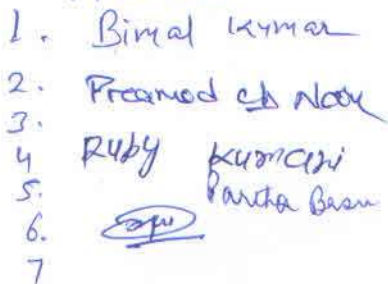 1. Bimal Kumar
2. Pramod ch
3.
4 Ruby Kumari
5. Partha Basu
6.
7